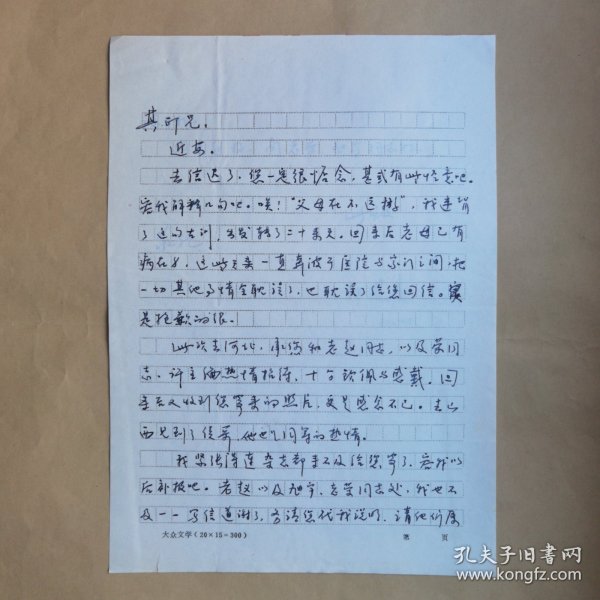 其印兄，
近安。
去信迟了，您一定很惦念，甚或有些怪意吧。
容我解释几句吧。唉！“父母在不远游”，我违背
了这句古训，出发转了二十来天。回来后老母已有
病在身，这些天来一直奔波于医院与家门之间，把
一切其他事情全耽误了，也耽误了给您回信。实
是抱歉的很。
此次去河北，承您和老赵同志，以及荣同
志、许主编热情招待，十分钦佩与感戴。回
来后又收到您寄来的照片，更是感念不已。去山
西见到了
他也同等的热情。
我紧张得连杂志都来不及给您寄了，容我以
后补报吧。老赵以及旭宇、老荣同志处，我也不
及一一写信道谢了，务请您代我说明，请他们原
大众文学(20×15=300)
第 页
孔夫子旧书网
www.kongfz.com